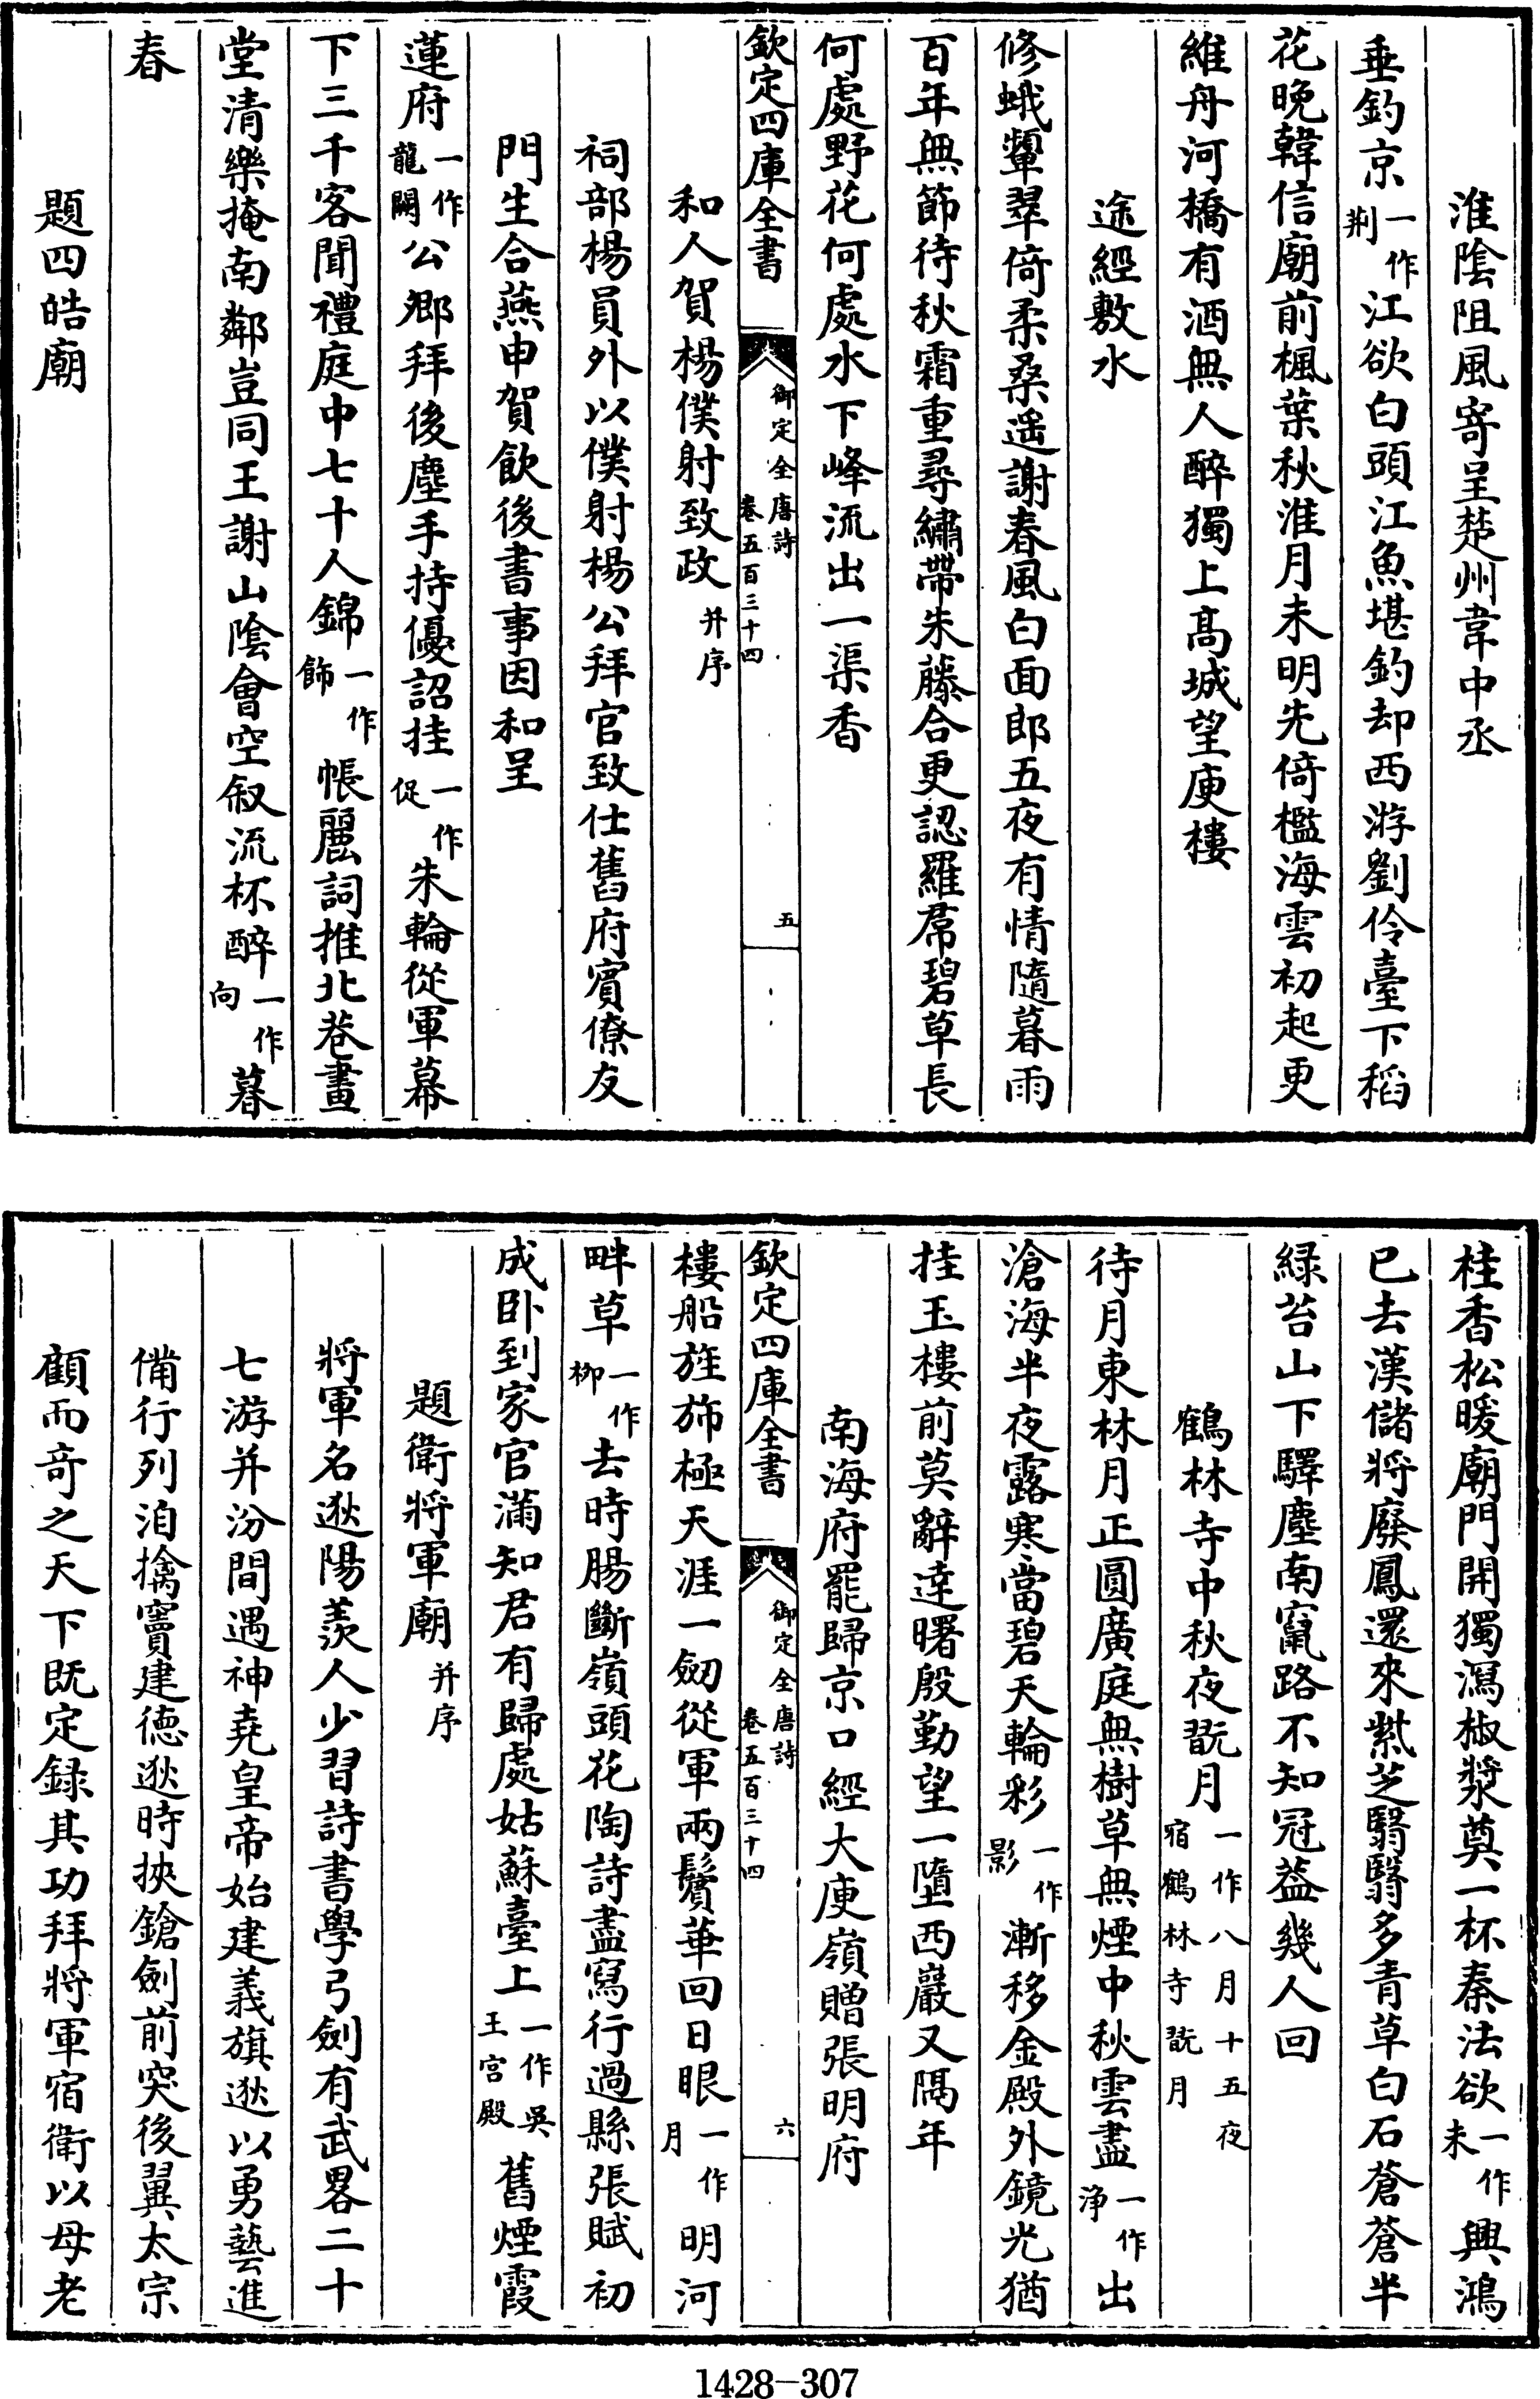 淮隂阻風寄呈楚州韋中丞
垂釣京一作荆江欲白頭江魚堪釣却西游劉伶臺下稻
花晚韓信廟前楓葉秋淮月未明先倚檻海雲初起更
維舟河橋有酒無人醉獨上髙城望庾樓
途經敷水
修蛾顰翠倚柔桑遥謝春風白面郎五夜有情隨暮雨
百年無節待秋霜重尋繡帶朱藤合更認羅帬碧草長
何處野花何處水下峰流出一渠香
欽定四庫全書
御定全唐詩
卷五百三十四
五
和人賀楊僕射致政并序
祠部楊員外以僕射楊公拜官致仕舊府賓僚友
門生合燕申賀飲後書事因和呈
蓮府一作龍闕公卿拜後塵手持優詔挂一作促朱輪從軍幕
下三千客聞禮庭中七十人錦一作飾帳麗詞推北巷畫
堂清樂掩南鄰豈同王謝山隂會空叙流杯醉一作向暮
春
題四皓廟
桂香松暖廟門開獨瀉椒漿奠一杯秦法欲一作未興鴻
已去漢儲將廢鳳還來紫芝翳翳多青草白石蒼蒼半
緑苔山下驛塵南竄路不知冠葢幾人回
鶴林寺中秋夜翫月一作八月十五夜宿鶴林寺翫月
待月東林月正圓廣庭無樹草無煙中秋雲盡一作浄出
滄海半夜露寒當碧天輪彩一作影漸移金殿外鏡光猶
挂玉樓前莫辭達曙殷勤望一墮西巖又隔年
南海府罷歸京口經大庾嶺贈張明府
欽定四庫全書
御定全唐詩
卷五百三十四
六
樓船旌斾極天涯一劒從軍兩鬢華回日眼一作月明河
畔草一作栁去時腸斷嶺頭花陶詩盡寫行過縣張賦初
成卧到家官滿知君有歸處姑蘇臺上一作吳王宫殿舊煙霞
題衛將軍廟并序
將軍名逖陽羨人少習詩書學弓劍有武畧二十
七游并汾間遇神堯皇帝始建義旗逖以勇藝進
備行列洎擒竇建德逖時挾鎗劍前突後翼太宗
顧而竒之天下既定録其功拜將軍宿衛以母老
1428-307